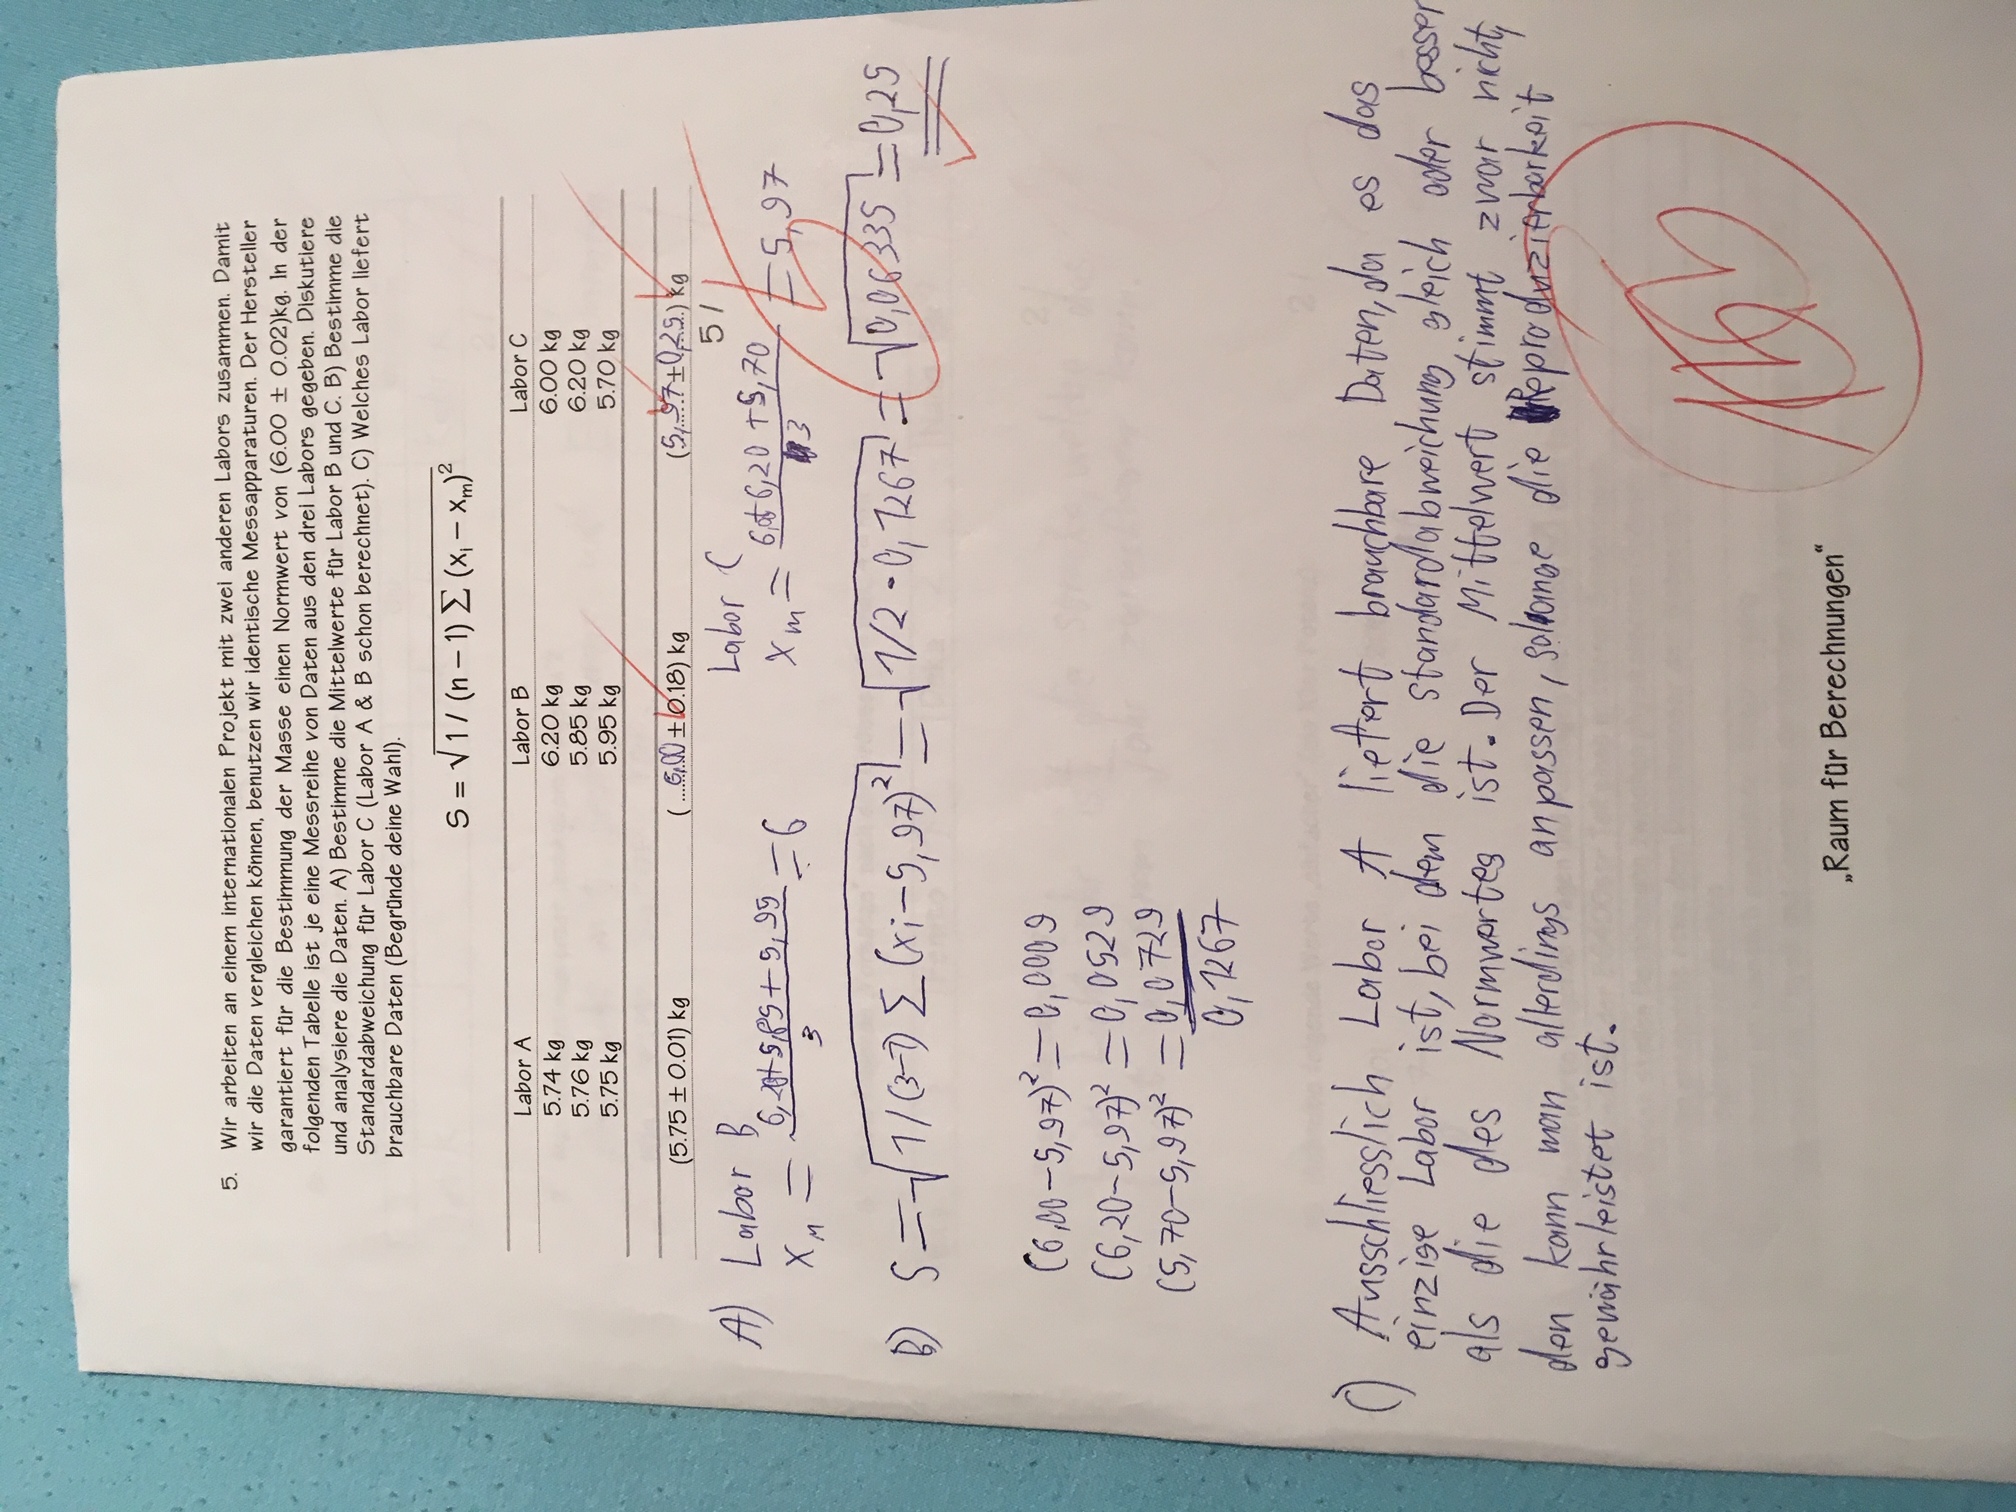 5. Wir arbeiten an einem internationalen Projekt mit zwei anderen Labors zusammen. Damit
wir die Daten vergleichen können, benutzen wir identische Messapparaturen. Der Hersteller
garantiert für die Bestimmung der Masse einen Normwert von (6.00 ± 0.02)kg. In der
folgenden Tabelle ist je eine Messreihe von Daten aus den drei Labors gegeben. Diskutiere
und analysiere die Daten. A) Bestimme die Mittelwerte für Labor B und C. B) Bestimme die
Standardabweichung für Labor C (Labor A & B schon berechnet). C) Welches Labor liefert
brauchbare Daten (Begründe deine Wahl).
S = √1 / (n – 1) ∑ (xᵢ – xₘ)²
Labor A Labor B Labor C
5.74 kg 6.20 kg 6.00 kg
5.76 kg 5.85 kg 6.20 kg
5.75 kg 5.95 kg 5.70 kg
(5.75 ± 0.01) kg (...6,00 ± 0.18) kg (5,97 ± 0,25.) kg
5 /
A) Labor B Labor C
xₘ = (6,20+5,85+5,95)/3 = 6 xₘ = (6,0+6,20+5,70)/3 = 5,97
B) S = √1/(3-1) ∑ (xi-5,97)² = √1/2 · 0,1267 = √0,06335 = 0,25
(6,00-5,97)² = 0,0009
(6,20-5,97)² = 0,0529
(5,70-5,97)² = 0,0729
0,1267
C) Ausschliesslich Labor A liefert brauchbare Daten, da es das
einzige Labor ist, bei dem die Standardabweichung gleich oder besser
als die des Normwertes ist. Der Mittelwert stimmt zwar nicht,
den kann man allerdings anpassen, solange die Reproduzierbarkeit
gewährleistet ist.
„Raum für Berechnungen“